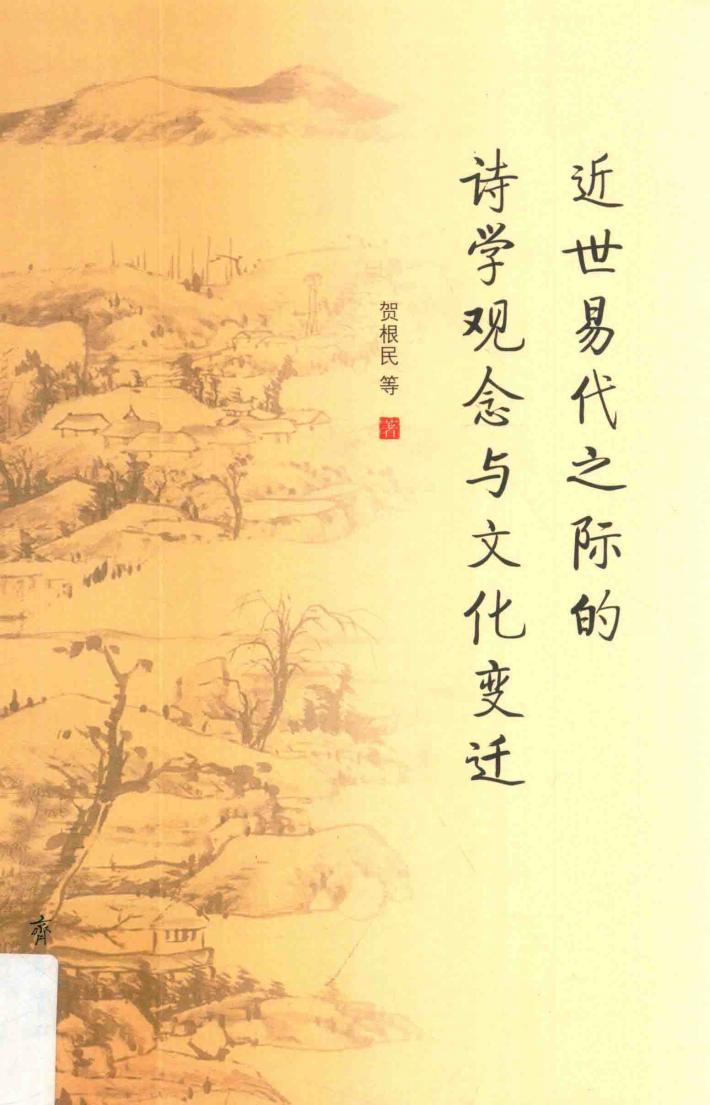 近世易代之际的
诗学观念与文化变迁
贺根民 等
著
齊